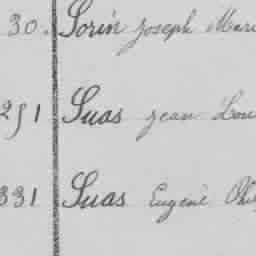 30. Sorin Joseph Mari
251 Suas Jean Lou
331 Suas Eugène